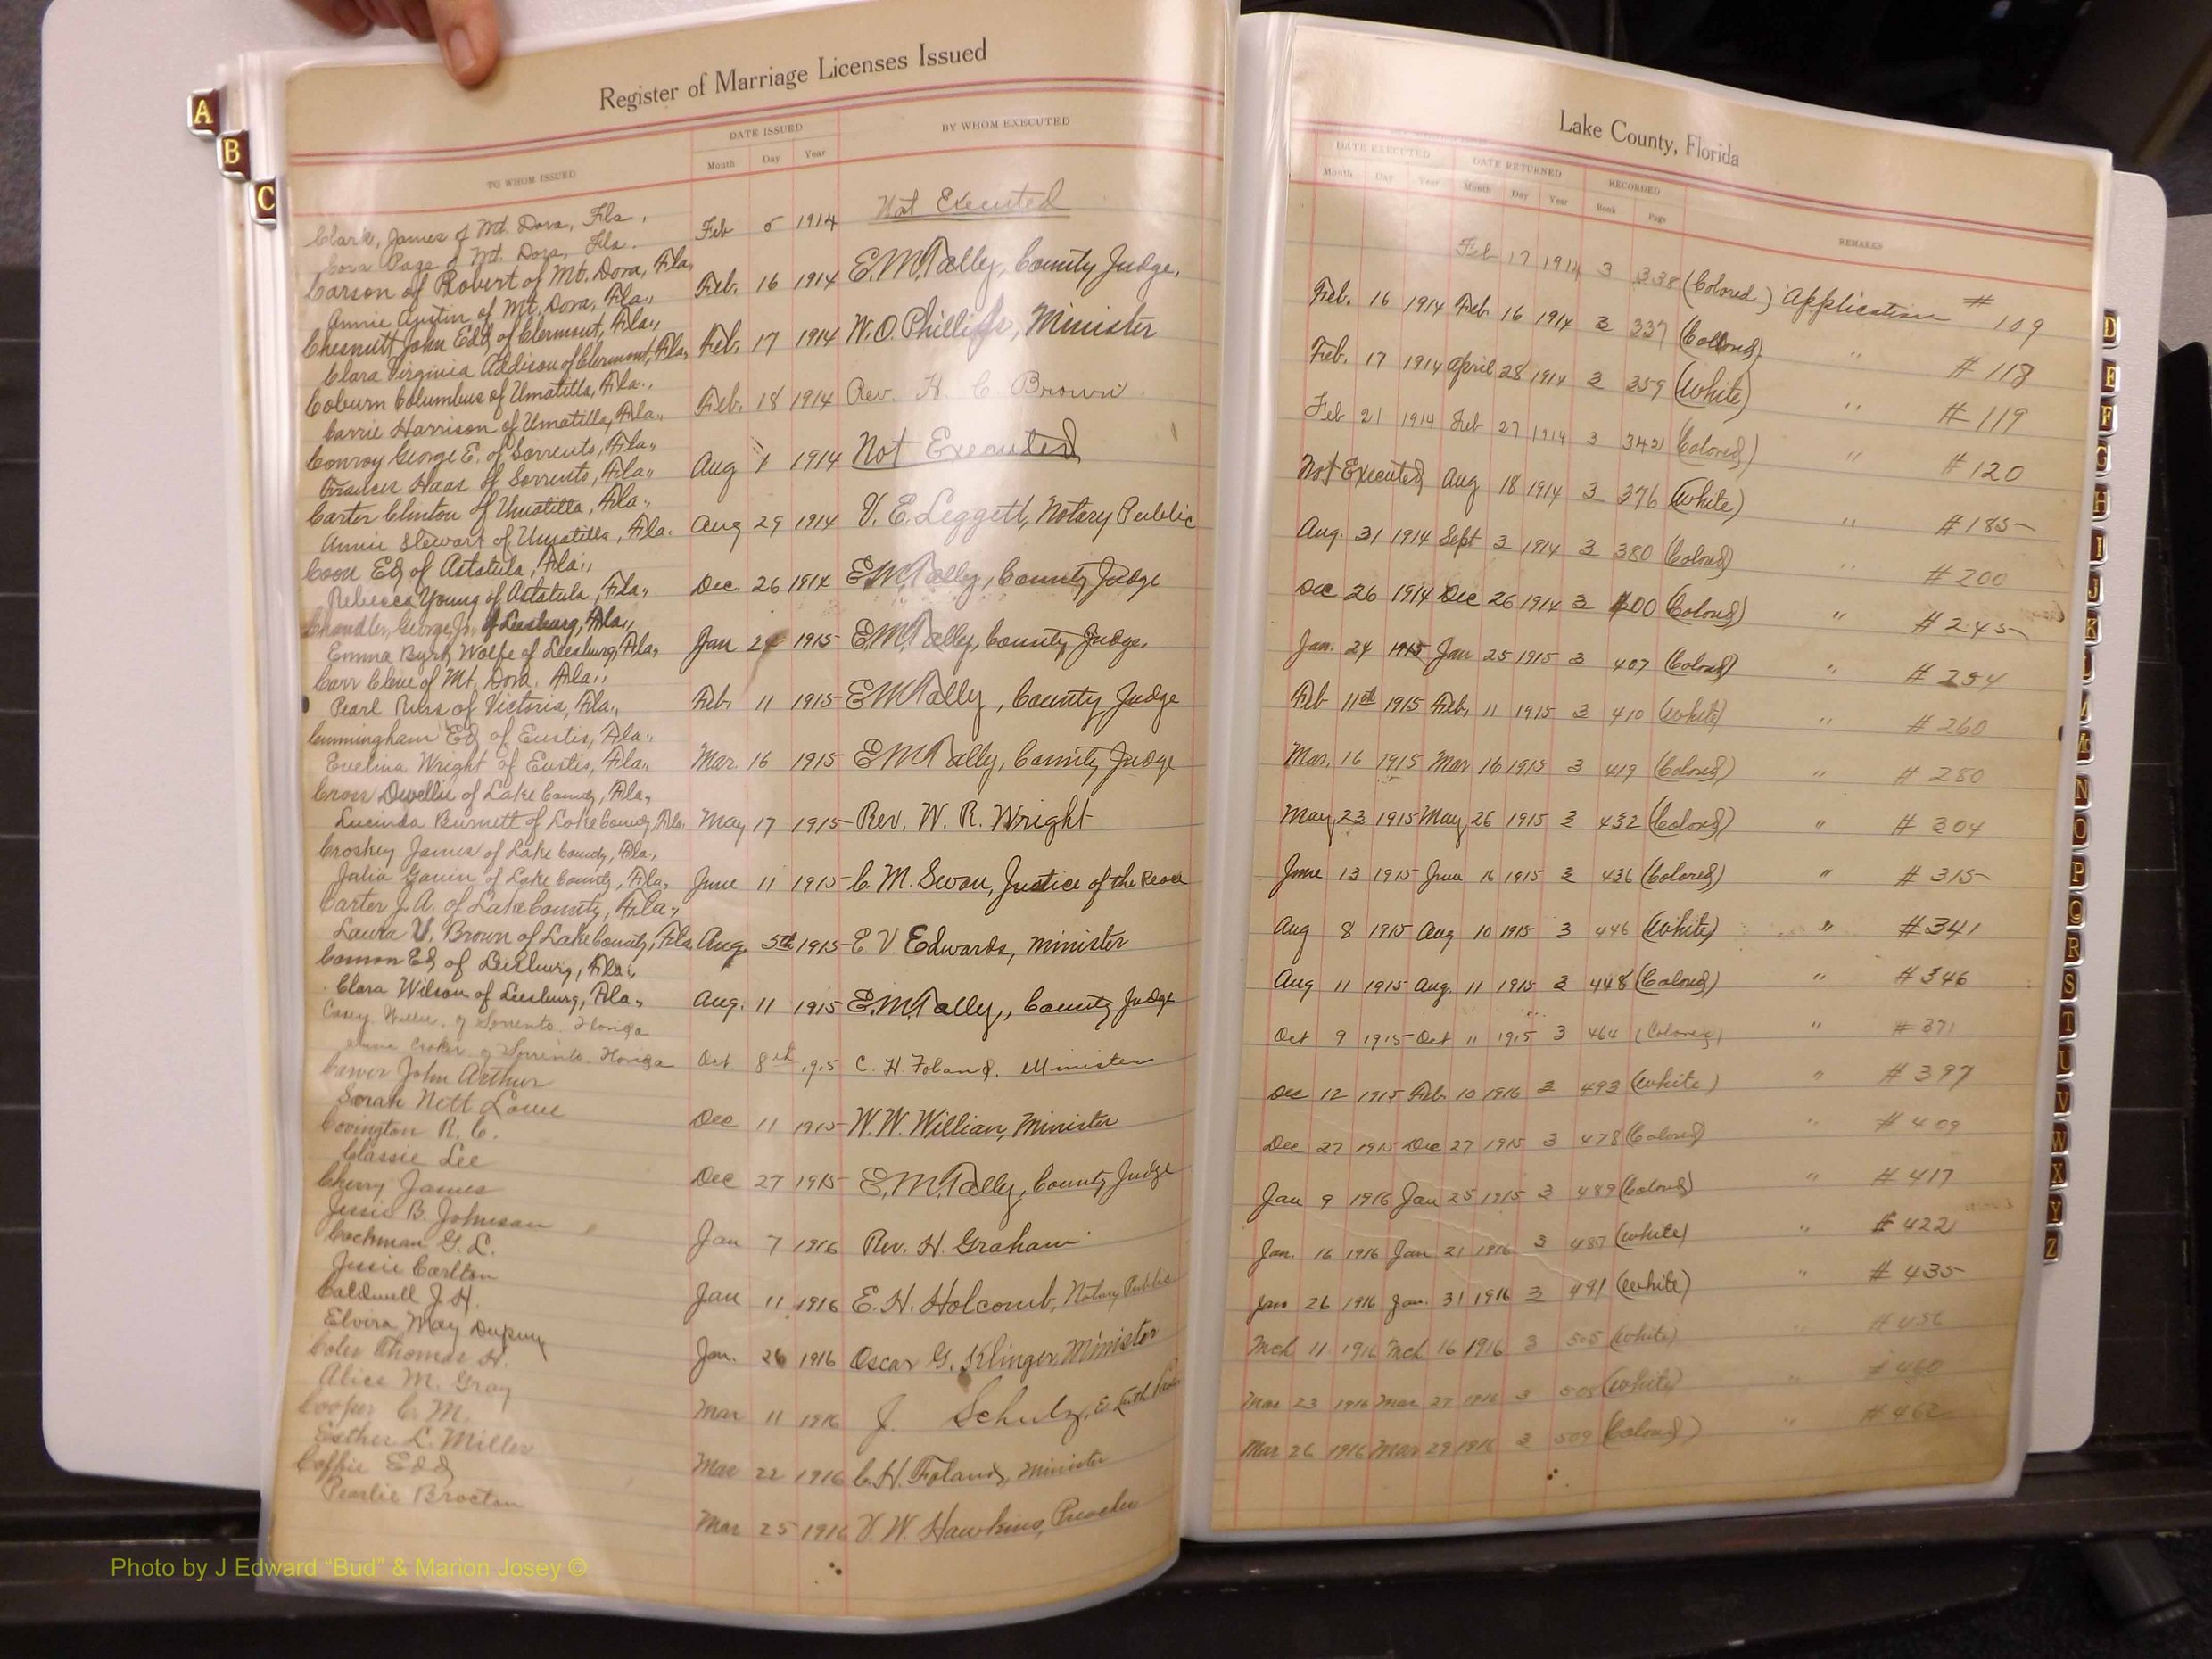 A
B
C
Register of Marriage Licenses Issued
TO WHOM ISSUED
DATE ISSUED
Month Day Year
BY WHOM EXECUTED
Clark, James of Mt. Dora, Fla.
Cora Page of Mt. Dora, Fla. Feb 5 1914 Not Executed
Carson of Robert of Mt. Dora, Fla.
Annie Austin of Mt. Dora, Fla., Feb. 16 1914 E.M. Tally, County Judge.
Chesnutt John Edd of Clermont, Fla.,
Clara Virginia Addison of Clermont, Fla. Feb. 17 1914 W.O. Phillips, Minister
Coburn Columbus of Umatilla, Fla.,
Carrie Harrison of Umatilla, Fla., Feb. 18 1914 Rev. H. C. Brown
Conroy George E. of Sorrento, Fla.,
Frances Haas of Sorrento, Fla., Aug 1 1914 Not Executed
Carter Clinton of Umatilla, Fla.,
Annie Stewart of Umatilla, Fla. Aug 29 1914 V. E. Leggett, Notary Public
Coon Ed of Astatula, Fla.,
Rebecca Young of Astatula, Fla., Dec. 26 1914 E.M. Tally, County Judge
Chandler, George, Jr. of Leesburg, Fla.,
Emma Burk Wolfe of Leesburg, Fla., Jan 24 1915 E.M. Tally, County Judge.
Carr Cleve of Mt. Dora, Fla.,
Pearl Russ of Victoria, Fla., Feb. 11 1915 E M Tally, County Judge
Cunningham Ed of Eustis, Fla.,
Evelina Wright of Eustis, Fla., Mar. 16 1915 E M Tally, County Judge
Cross Dwellie of Lake County, Fla.,
Lucinda Burnett of Lake County, Fla. May 17 1915 Rev. W. R. Wright
Croskey James of Lake County, Fla.,
Julia Gavin of Lake County, Fla., June 11 1915 C. M. Swan, Justice of the Peace
Carter J. A. of Lake County, Fla.,
Laura V. Brown of Lake County, Fla. Aug. 5th 1915 E V Edwards, Minister
Camon Ed of Leesburg, Fla.,
Clara Wilson of Leesburg, Fla., Aug. 11 1915 E.M. Tally, County Judge
Casey Willie of Sorrento Florida
Croker of Sorrento Florida Oct. 8th 1915 C. H. Foland. Minister
Carver John Arthur
Sarah Nett Lowe Dec 11 1915 W. W. William, Minister
Covington R. C.
Classie Lee Dec 27 1915 E. M. Tally, County Judge
Cherry James
Jessie B. Johnson Jan 7 1916 Rev. H. Graham
Cachman G. L.
Jessie Carlton Jan 11 1916 E. H. Holcomb, Notary Public
Caldwell J. H.
Elvira May Dupuy Jan. 26 1916 Oscar G. Klinger, Minister
Coler Thomas H.
Alice M. Gray Mar 11 1916 J. Schulz, Ev. Luth.
Cooper C. M.
Esther L. Miller Mar 22 1916 C. H. Foland, Minister
Coffie Edd
Pearlie Brocton Mar 25 1916 V. W. Hawkins, Preacher
Lake County, Florida
DATE EXECUTED
Month Day Year
DATE RETURNED
Month Day Year
RECORDED
Book Page
REMARKS
Feb 17 1914 3 338 (Colored) Application # 109
Feb. 16 1914 Feb. 16 1914 3 337 (Colored) " # 118
Feb. 17 1914 April 28 1914 3 359 (White) " # 119
Feb 21 1914 Feb 27 1914 3 342 (Colored) " # 120
Not Executed Aug 18 1914 3 376 (White) " # 185
Aug. 31 1914 Sept 3 1914 3 380 (Colored) " # 200
Dec 26 1914 Dec 26 1914 3 400 (Colored) " # 245
Jan. 24 1915 Jan 25 1915 3 407 (Colored) " # 254
Feb 11th 1915 Feb. 11 1915 3 410 (White) " # 260
Mar. 16 1915 Mar 16 1915 3 419 (Colored) " # 280
May 23 1915 May 26 1915 3 432 (Colored) " # 304
June 13 1915 June 16 1915 3 436 (Colored) " # 315
Aug 8 1915 Aug 10 1915 3 446 (White) " # 341
Aug 11 1915 Aug. 11 1915 3 448 (Colored) " # 346
Oct 9 1915 Oct 11 1915 3 464 (Colored) " # 371
Dec 12 1915 Feb. 10 1916 3 493 (White) " # 397
Dec 27 1915 Dec 27 1915 3 478 (Colored) " # 409
Jan 9 1916 Jan 25 1915 3 489 (Colored) " # 417
Jan. 16 1916 Jan 21 1916 3 487 (White) " # 422
Jan 26 1916 Jan. 31 1916 3 491 (White) " # 435
Mch 11 1916 Mch 16 1916 3 505 (White) " # 456
Mar 23 1916 Mar 27 1916 3 508 (White) " # 460
Mar 26 1916 Mar 29 1916 3 509 (Colored) " # 462
D
E
F
G
H
I
J
K
M
N
O
P
Q
R
S
T
U
V
W
X
Y
Z
Photo by J Edward “Bud” & Marion Josey ©